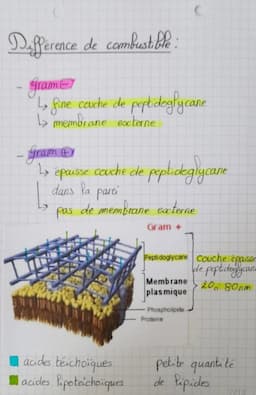 Différence de combustible :
- gram ⊖
↳ fine couche de peptidoglycane
↳ membrane externe
- gram ⊕
↳ épaisse couche de peptidoglycane
dans la paroi
↳ pas de membrane externe
Gram +
Peptidoglycane
Couche épaisse
de peptidoglycane
20 à 80 nm
Membrane
plasmique
Phospholipide
Protéine
acides teichoïques
acides lipoteichoïques
petite quantité
de lipides